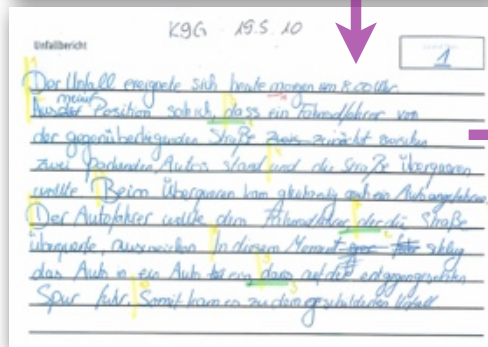 K9G 19.5.10
Unfallbericht
1
Der Unfall ereignete sich heute morgen um 8.00 Uhr.
Aus meiner Position sah ich, dass ein Fahrradfahrer von
der gegenüberliegenden Straße zunächst zwischen
zwei parkenden Autos stand und die Straße überqueren
wollte. Beim Überqueren kam gleichzeitig auch ein Auto angefahren.
Der Autofahrer wollte dem Fahrradfahrer der die Straße
überquerte, ausweichen. In diesem Moment schlug
das Auto in ein Auto ein, dass auf der entgegengesetzten
Spur fuhr. Somit kam es zu dem geschilderten Unfall